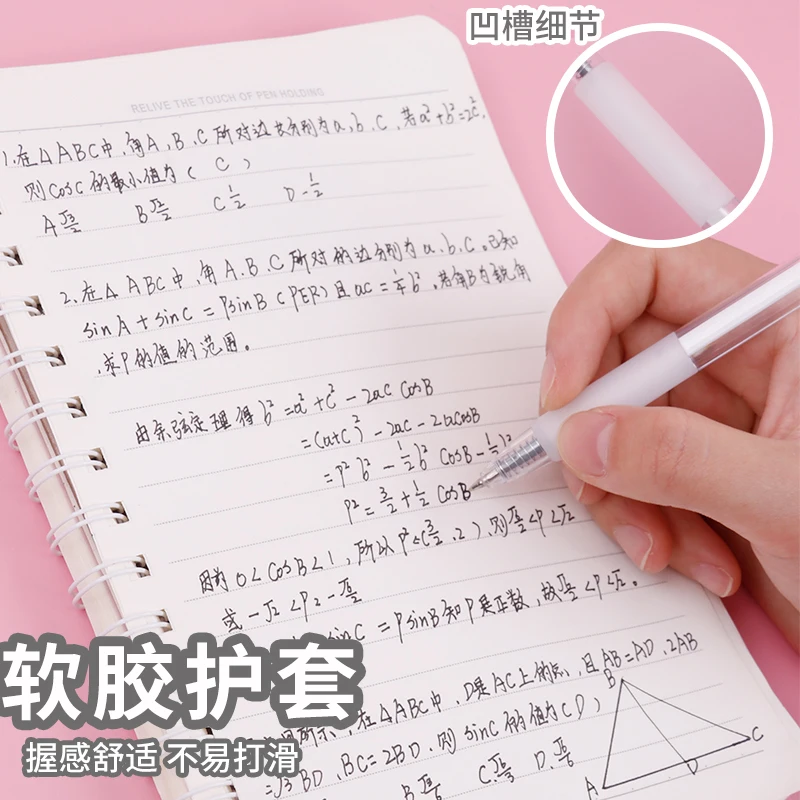 凹槽细节
RELIVE THE TOUCH OF PEN HOLDING
1.在△ABC中,角A,B,C所对边长分别为a,b,c,若a²+b²=2c²,
则cosC的最小值为( C )
A √3/2 B √2/2 C 1/2 D -1/2
2.在△ABC中,角A.B.C所对的边分别为a.b.c.已知
sinA+sinC=psinB(PER)且ac=1/4b².若角B为锐角
,求P的值的范围。
由余弦定理得b²=a²+c²-2ac cosB
=(a+c)²-2ac-2accosB
=P²b²-1/2b² cosB-1/2b²
P²=3/2+1/2 cosB
因为0<cosB<1,所以P²∈(3/2,2),则√6/2<P<√2
或-√2<P<-√6/2
sinC=PsinB知P是正数,故√6/2<P<√2。
所示,在△ABC中,D是AC上的点,且AB=AD,2AB
=√3BD,BC=2BD.则sinC的值为(D)
B √3/6 C √6/3 D √6/6
B
C
A
D
软胶护套
握感舒适 不易打滑